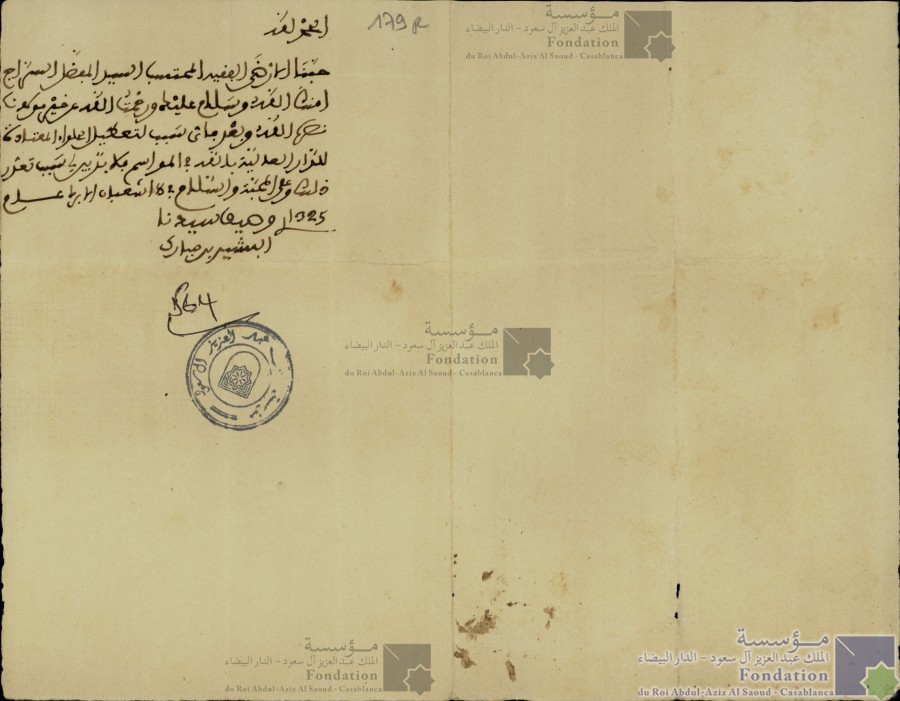 الحمد لله
179 R
محبنا الارضى الفقيه المحتسب السيد المفضل السراج
امنك الله وسلام عليك ورحمت الله عن خير مولانا
نصره الله وبعد سبب تعطيل الحلواء المعتادة
للزاوية بالله المواسم فلا بد بين لي سبب تعذر
ذلك وعلى المحبة والسلام في شعبان الابرك عام
1325 وصيف سيدنا
البشير بن مبارك
564
مؤسسة
الملك عبد العزيز آل سعود - الدار البيضاء
Fondation
du Roi Abdul-Aziz Al Saoud - Casablanca
مؤسسة
الملك عبد العزيز آل سعود - الدار البيضاء
Fondation
du Roi Abdul-Aziz Al Saoud - Casablanca
مؤسسة عبد العزيز آل سعود
مؤسسة
الملك عبد العزيز آل سعود - الدار البيضاء
Fondation
du Roi Abdul-Aziz Al Saoud - Casablanca
مؤسسة
الملك عبد العزيز آل سعود - الدار البيضاء
Fondation
du Roi Abdul-Aziz Al Saoud - Casablanca